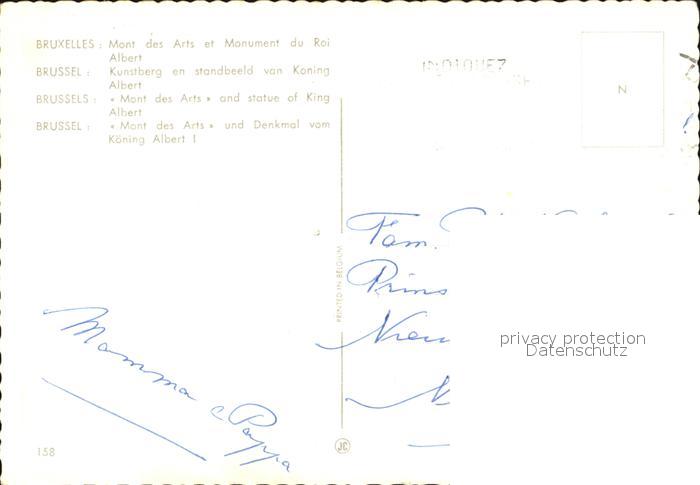 BRUXELLES : Mont des Arts et Monument du Roi
Albert
BRUSSEL : Kunstberg en standbeeld van Koning
Albert
BRUSSELS : « Mont des Arts » and statue of King
Albert
BRUSSEL : « Mont des Arts » und Denkmal vom
Köning Albert I
INDIQUEZ
N
PRINTED IN BELGIUM
Fam.
Prins
Nieu
N
privacy protection
Datenschutz
Mamma e Pappa
158
JC